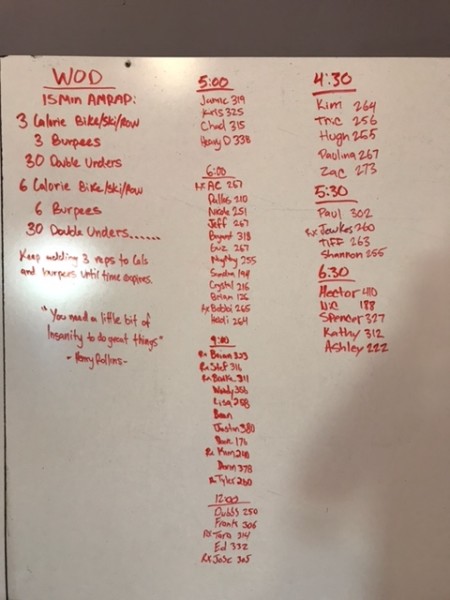 WOD
15min AMRAP:
3 Calorie Bike/Ski/Row
3 Burpees
30 Double Unders
6 Calorie Bike/Ski/Row
6 Burpees
30 Double Unders......
Keep adding 3 reps to Cals
and burpees until time expires.
"You need a little bit of
Insanity to do great things"
-Henry Rollins-
5:00
Jamie 319
Kris 325
Chad 315
Henry D 338
6:00
Rx AC 267
Dallas 210
Nicole 251
Jeff 267
Bryant 318
267
255
Sandra 194
Crystal 216
Brian 126
Rx Bobbi 265
Heidi 264
9:00
Rx Brian 323
Rx Stef 316
Rx 311
Woody 356
Lisa 258
Justin 380
176
Rx Kim 240
Dann 378
Rx Tyler 260
12:00
Dubbs 250
Frank 306
Rx Tara 314
Ed 332
Rx Jose 305
4:30
Kim 264
Tric 256
Hugh 255
Paulina 267
Zac 273
5:30
Paul 302
Rx Jewkes 260
Tiff 263
Shannon 255
6:30
Hector 410
188
Spencer 327
Kathy 312
Ashley 222